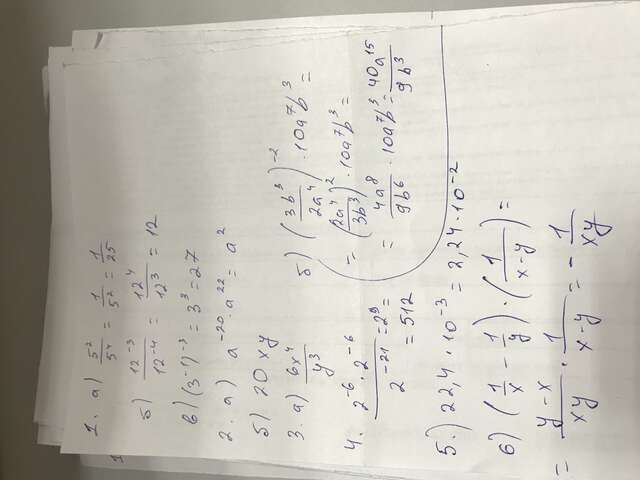 1. а) 5²/5⁴ = 1/5² = 1/25
б) 12⁻³/12⁻⁴ = 12⁴/12³ = 12
в) (3⁻¹)⁻³ = 3³ = 27
2. а) a⁻²⁰ · a²² = a²
б) 20xy
3. а) 6x⁴/y³
б) (3b³/2a⁴)⁻² · 10a⁷b³ =
= (2a⁴/3b³)² · 10a⁷b³ =
= 4a⁸/9b⁶ · 10a⁷b³ = 40a¹⁵/9b³
4. 2⁻⁶ · 2⁻⁶/2⁻²¹ = 2⁹ =
= 512
5.) 22,4 · 10⁻³ = 2,24 · 10⁻²
6) (1/x - 1/y) · (1/x-y) =
= y-x/xy · 1/x-y = - 1/xy